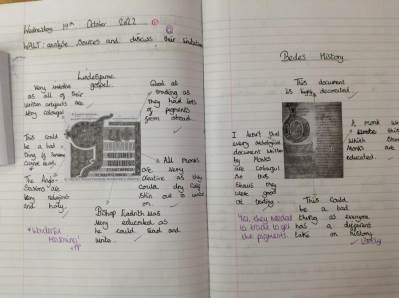 Wednesday 19th October 2022
WALT: analyse sources and discuss their limitations
Lindisfarne
gospel.
Very creative
as all of their
written artifacts are
very colourful
Good at
trading as
they had lots
of pigments
from abroad.
This could
be a bad
thing
The Anglo-
Saxons are
very religious
and holy.
All Monks
are very
creative as they
could dry calf
skin out to write
on.
Bishop Eadfrith was
very educated as
he could read and
write.
Wonderful
Reasoning!
Bedes History
This document
is highly decorated.
I learnt that
every
document written
by Monks
are colourful
so this
shows they
were good
at trading.
A monk
this
which shows
Monks are
educated.
This could
be a bad
thing as everyone
has a different
take on history
Yes, they needed
to trade to get
the pigments.